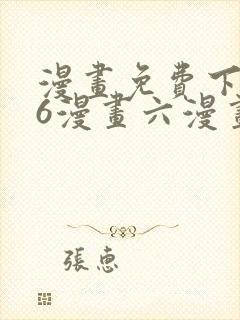 漫畫免費下
6漫畫六漫畫
張惠